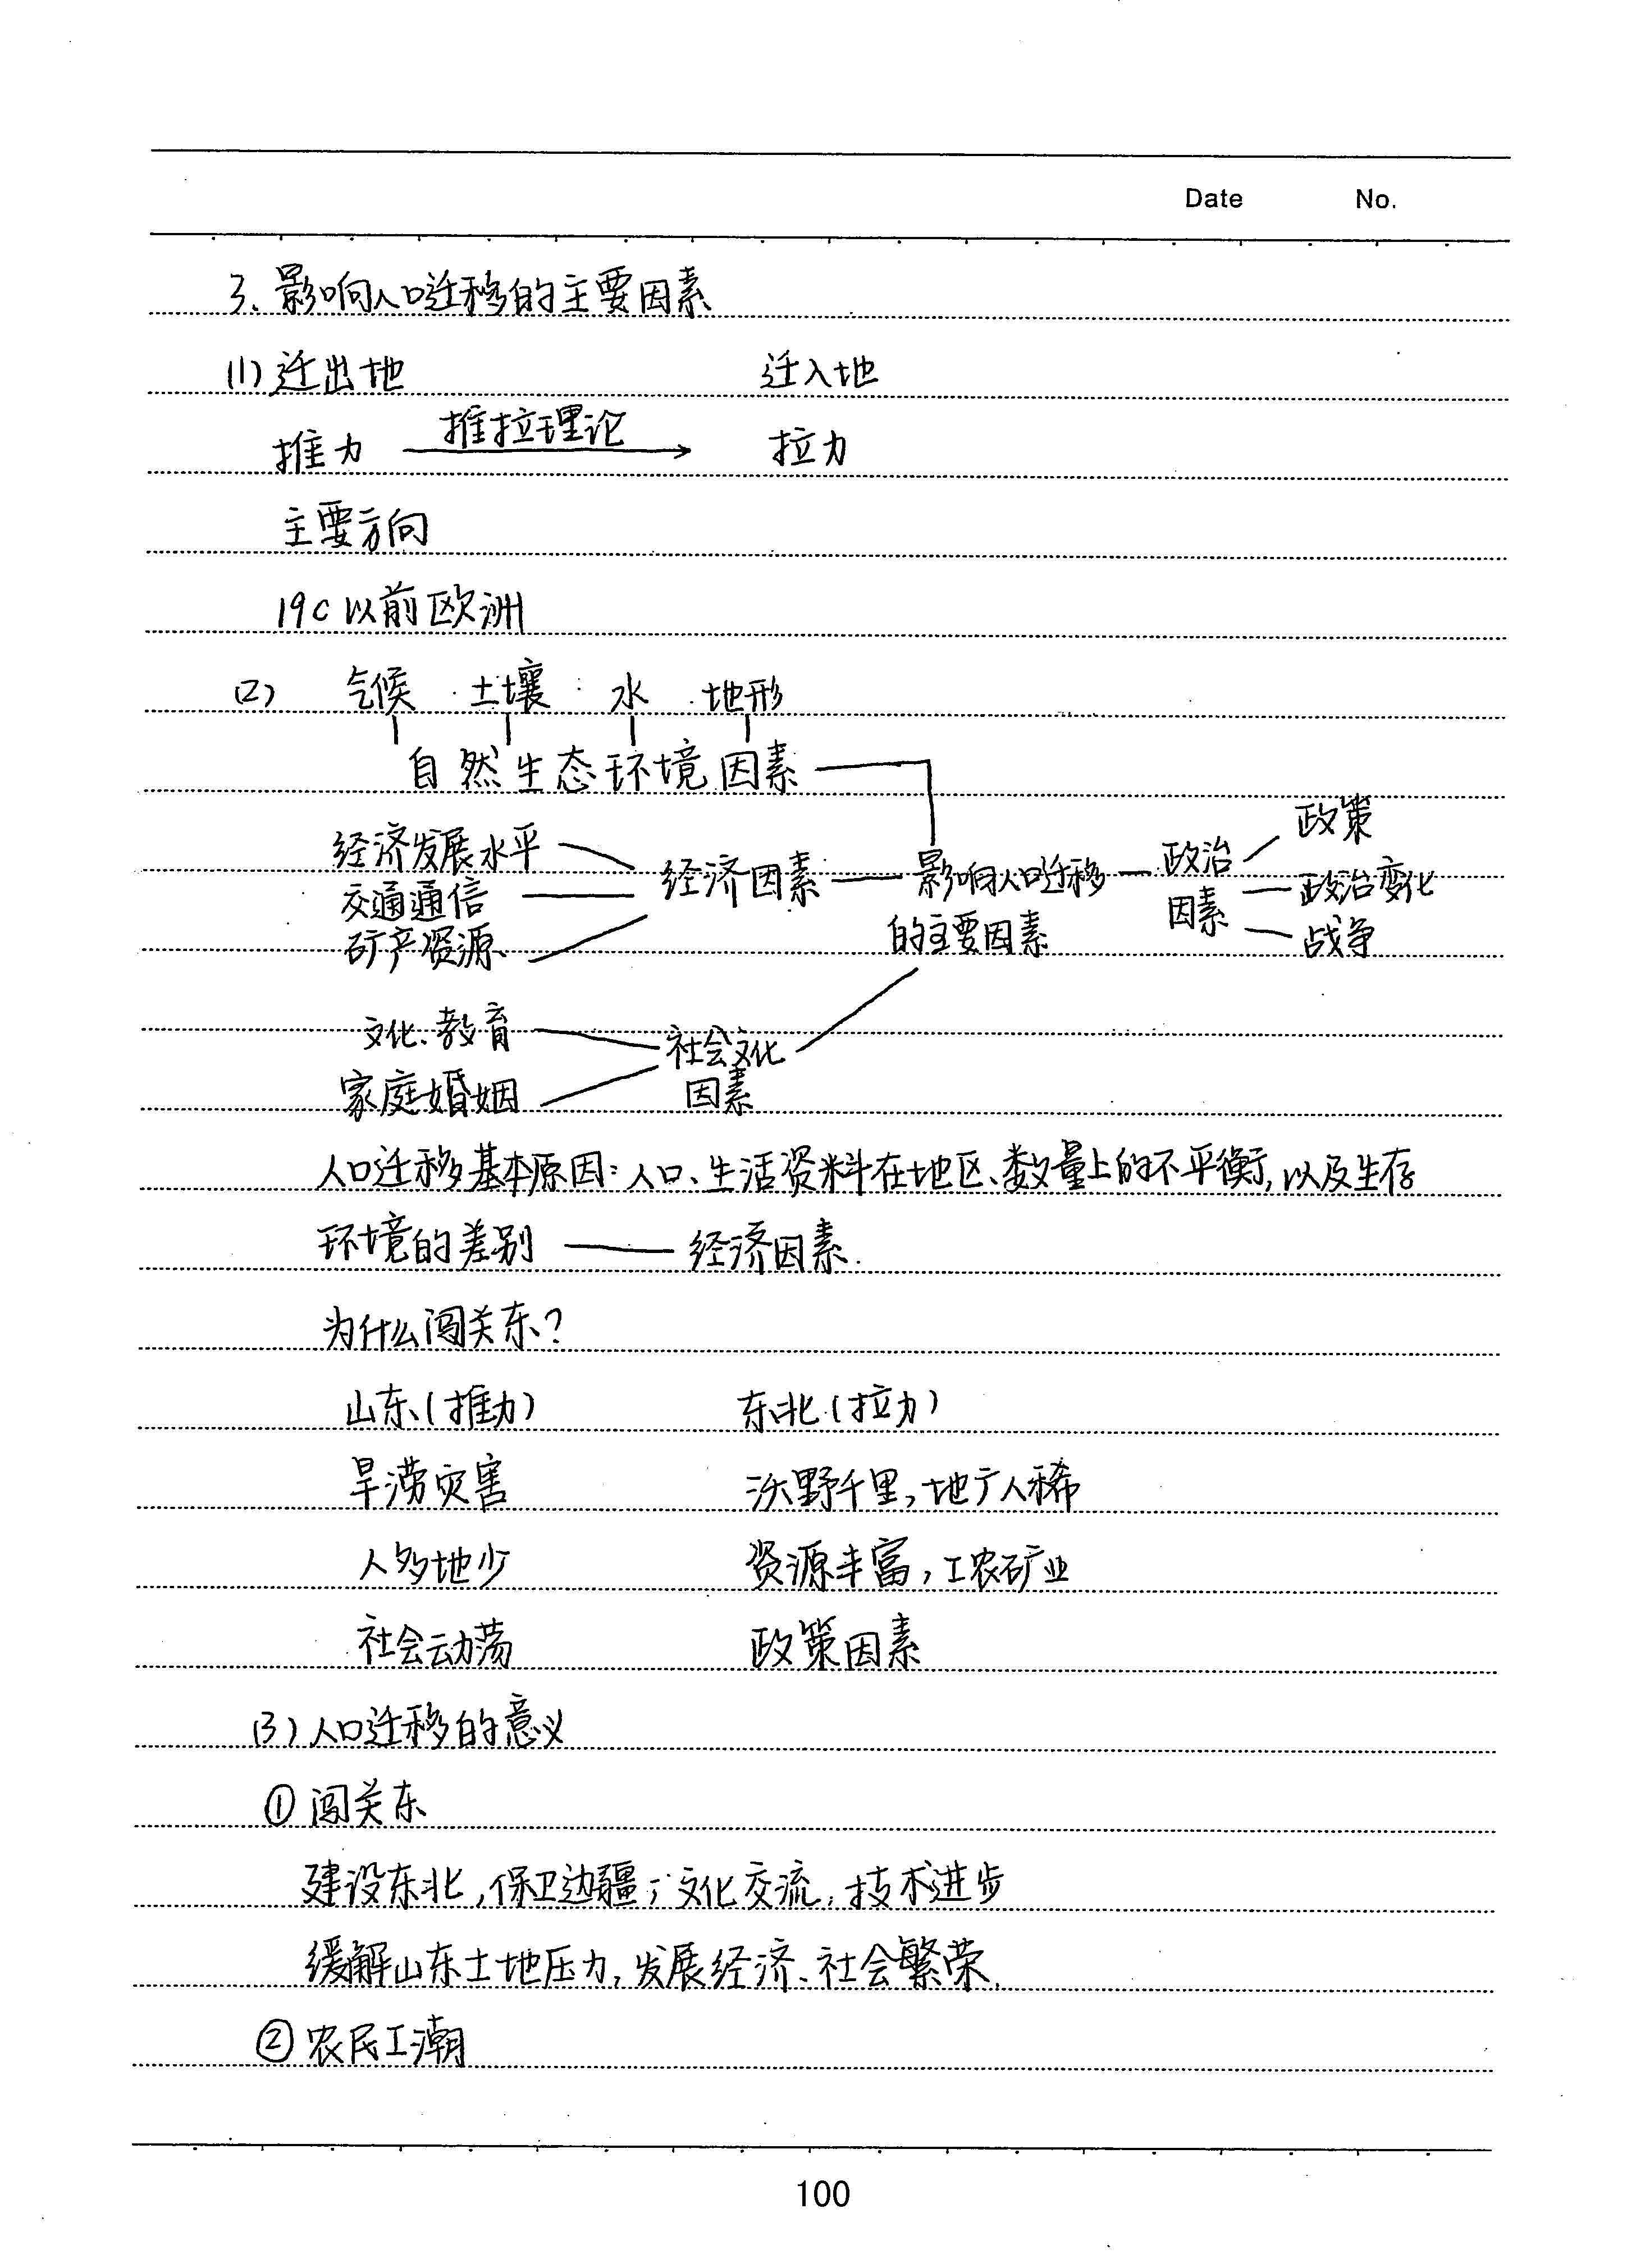 Date No.
3、影响人口迁移的主要因素
(1) 迁出地 迁入地
推力 推拉理论 拉力
主要方向
19c以前欧洲
(2) 气候 土壤 水 地形
自然生态环境因素
政策
经济发展水平
经济因素 影响人口迁移 政治
交通通信 的主要因素 因素 政治变化
矿产资源 战争
文化、教育 社会文化
家庭婚姻 因素
人口迁移基本原因:人口、生活资料在地区、数量上的不平衡,以及生存
环境的差别 —— 经济因素.
为什么闯关东?
山东(推力) 东北(拉力)
旱涝灾害 沃野千里,地广人稀
人多地少 资源丰富,工农矿业
社会动荡 政策因素
(3) 人口迁移的意义
① 闯关东
建设东北,保卫边疆;文化交流,技术进步
缓解山东土地压力,发展经济、社会繁荣.
② 农民工潮
100